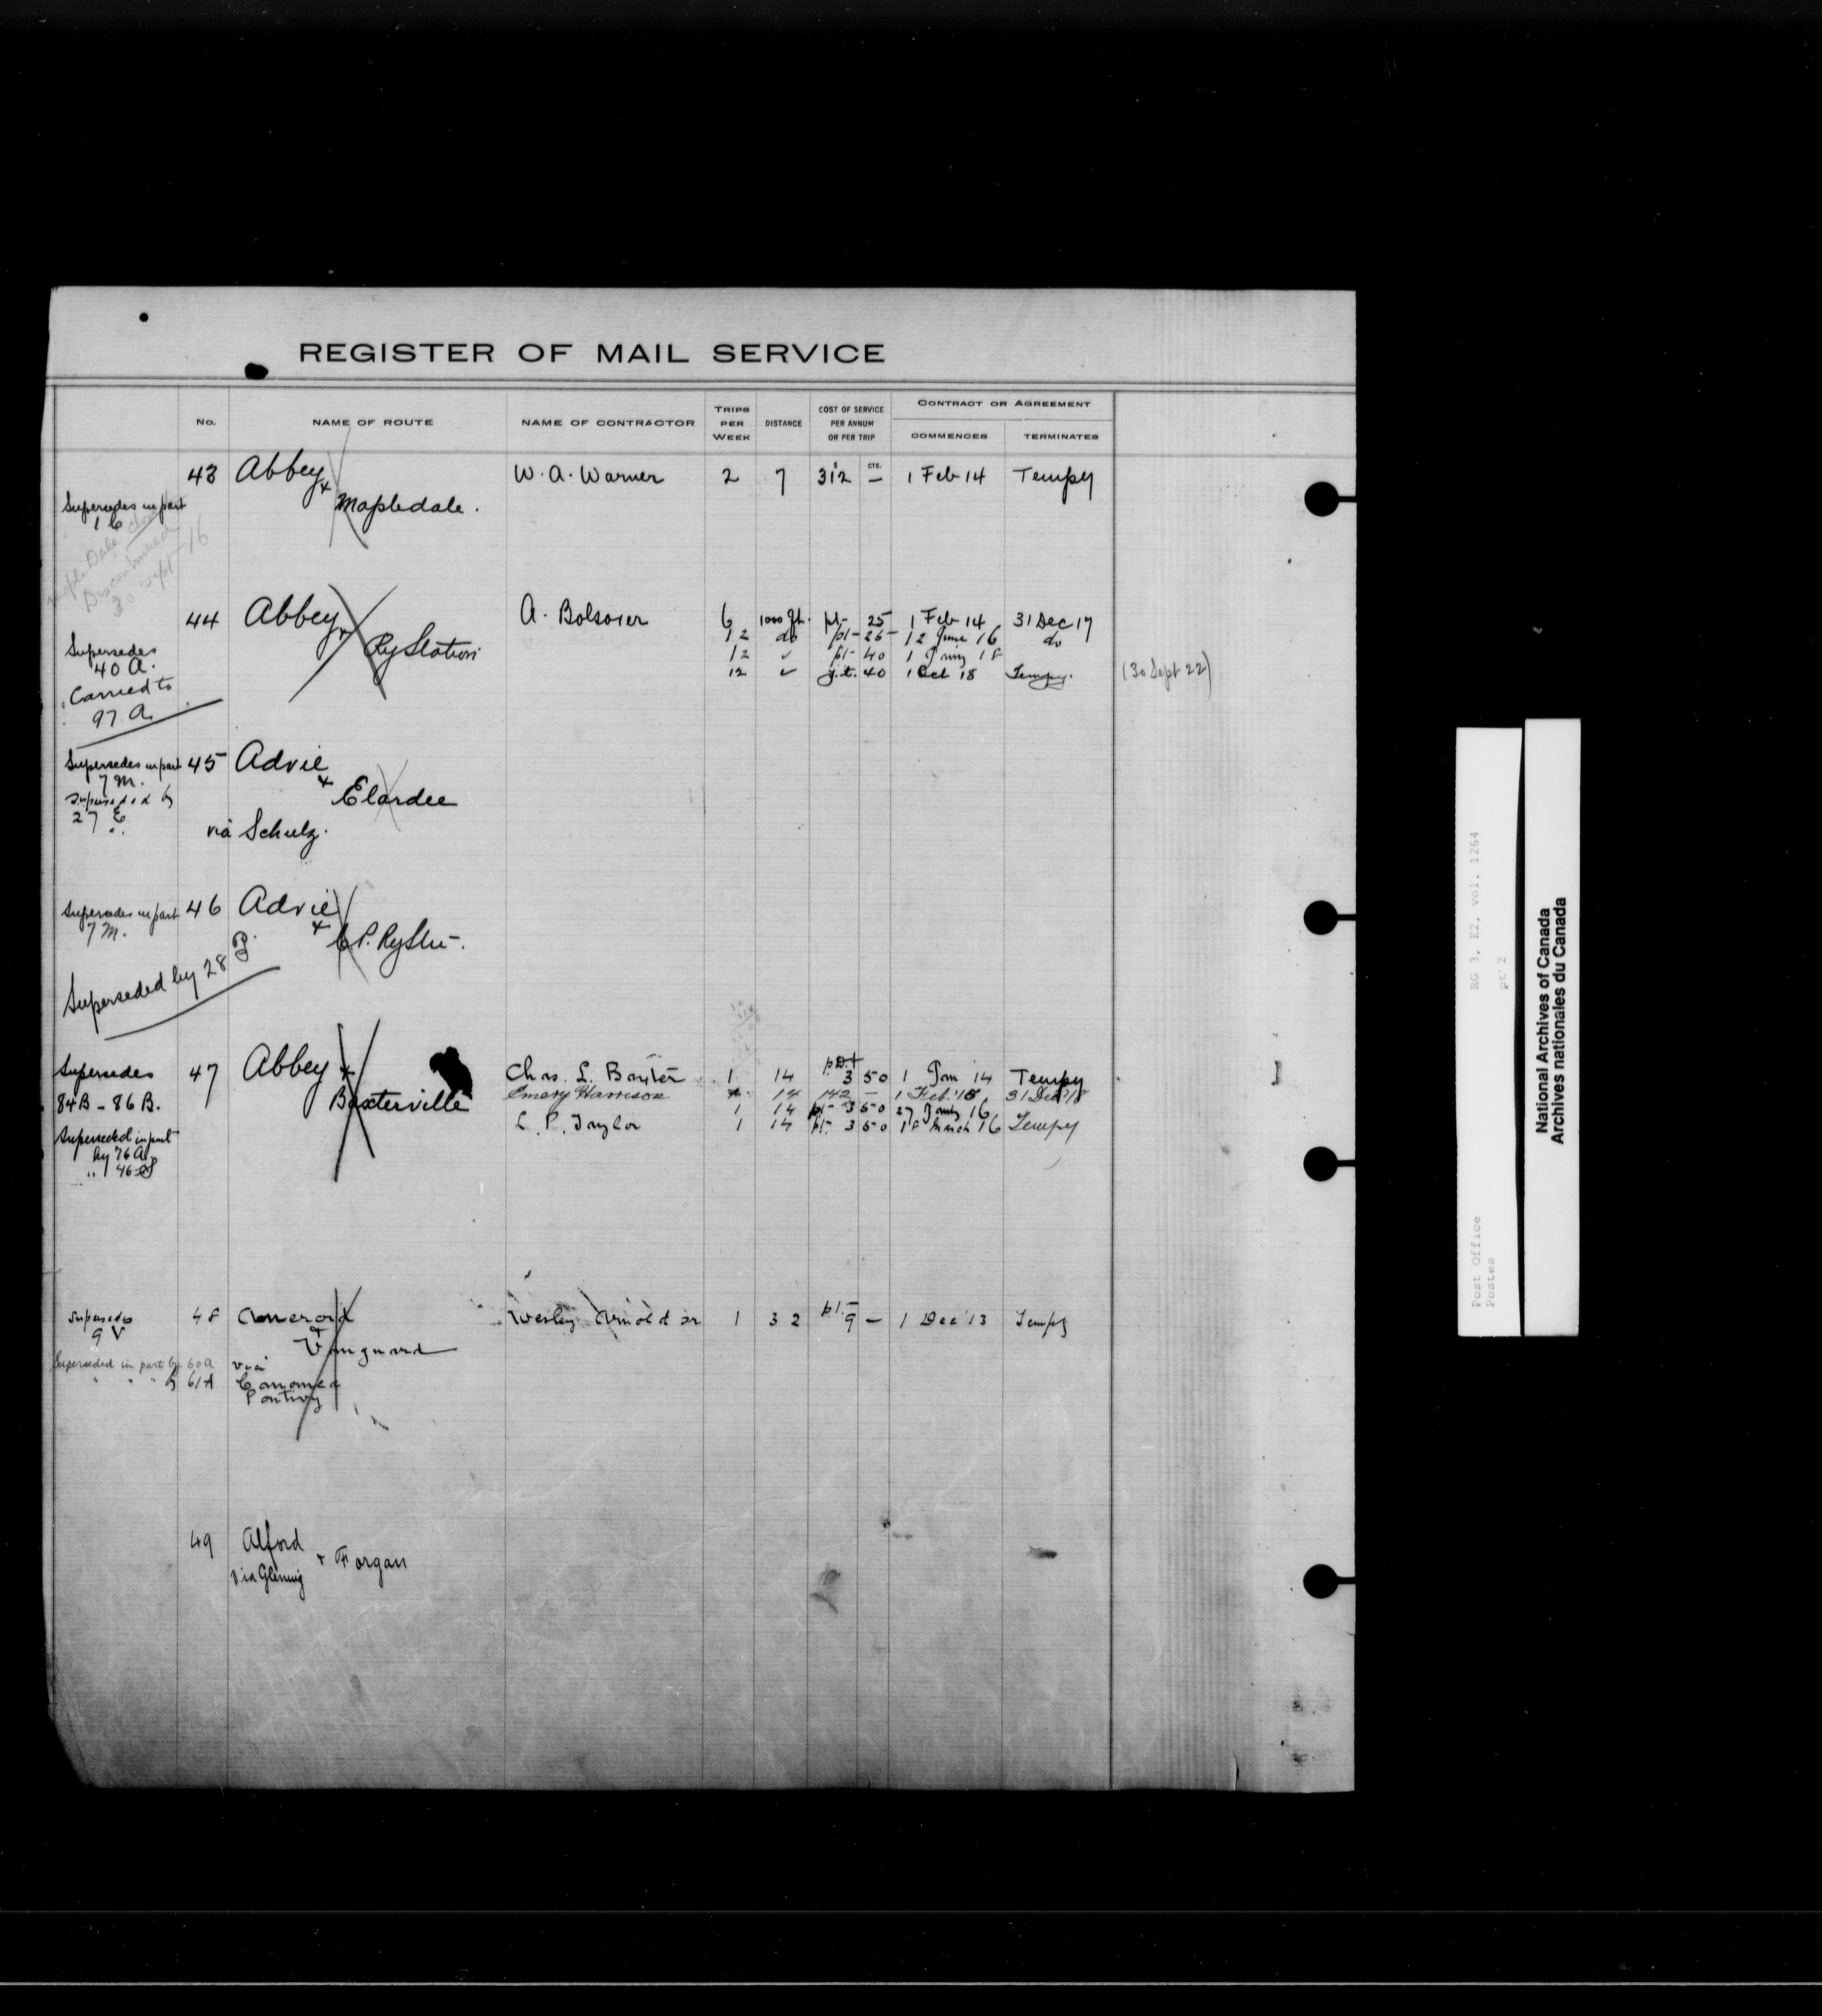 REGISTER OF MAIL SERVICE
No. NAME OF ROUTE NAME OF CONTRACTOR TRIPS PER WEEK DISTANCE COST OF SERVICE PER ANNUM OR PER TRIP CONTRACT OR AGREEMENT
COMMENCES TERMINATES
$ CTS.
43 Abbey & W. A. Warner 2 7 312 — 1 Feb 14 Tempy
Supersedes in part Mapledale.
1 C
Mapl. Dale closed
Discontinued
30 Sept-16
44 Abbey & A. Bolsover 6 1000 ft. pt- 25 1 Feb 14 31 Dec 17
12 do pt- 25 12 June 16 do
Supersedes Ry Station 12 ✓ pt- 40 1 18
40 A. 12 ✓ 40 1 Oct 18 Tempy. (30 Sept 22)
Carried to
97 A
Supersedes in part 45 Advie &
7 M. Elardee
Superseded by
27 E via Schulz.
Supersedes in part 46 Advie &
7 M. C.P. Ry Stn-.
Superseded by 28 P.
Supersedes 47 Abbey & Chas. L. Baxter 1 14 3 50 1 Jan 14 Tempy
84B - 86 B. Baxterville Emery Harrison 14 142 — 1 Feb. 31 Dec
1 14 pt- 3 50 27 16
Superseded in part L. P. Taylor 1 14 pt- 3 50 18 March 16 Tempy
by 76 A
" 46
Supersedes 48 Aneroid & Wesley Arnold 1 32 pt- 9 — 1 Dec 13 Tempy
9 V Vanguard
Superseded in part by 60 A via
" " " by 61 A
Pontivy
49 Alford & Forgan
via
RG 3, E2, vol. 1264
pt 2
Post Office
Postes
National Archives of Canada
Archives nationales du Canada